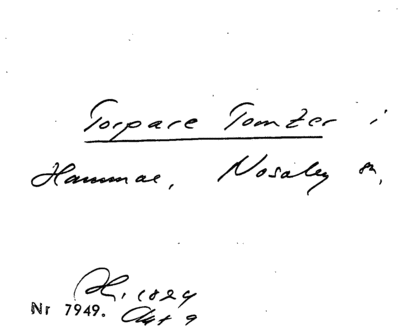 Torpare Tomter i
Hammar, Nosaby sn,
1824
Nr 7949. Akt 9